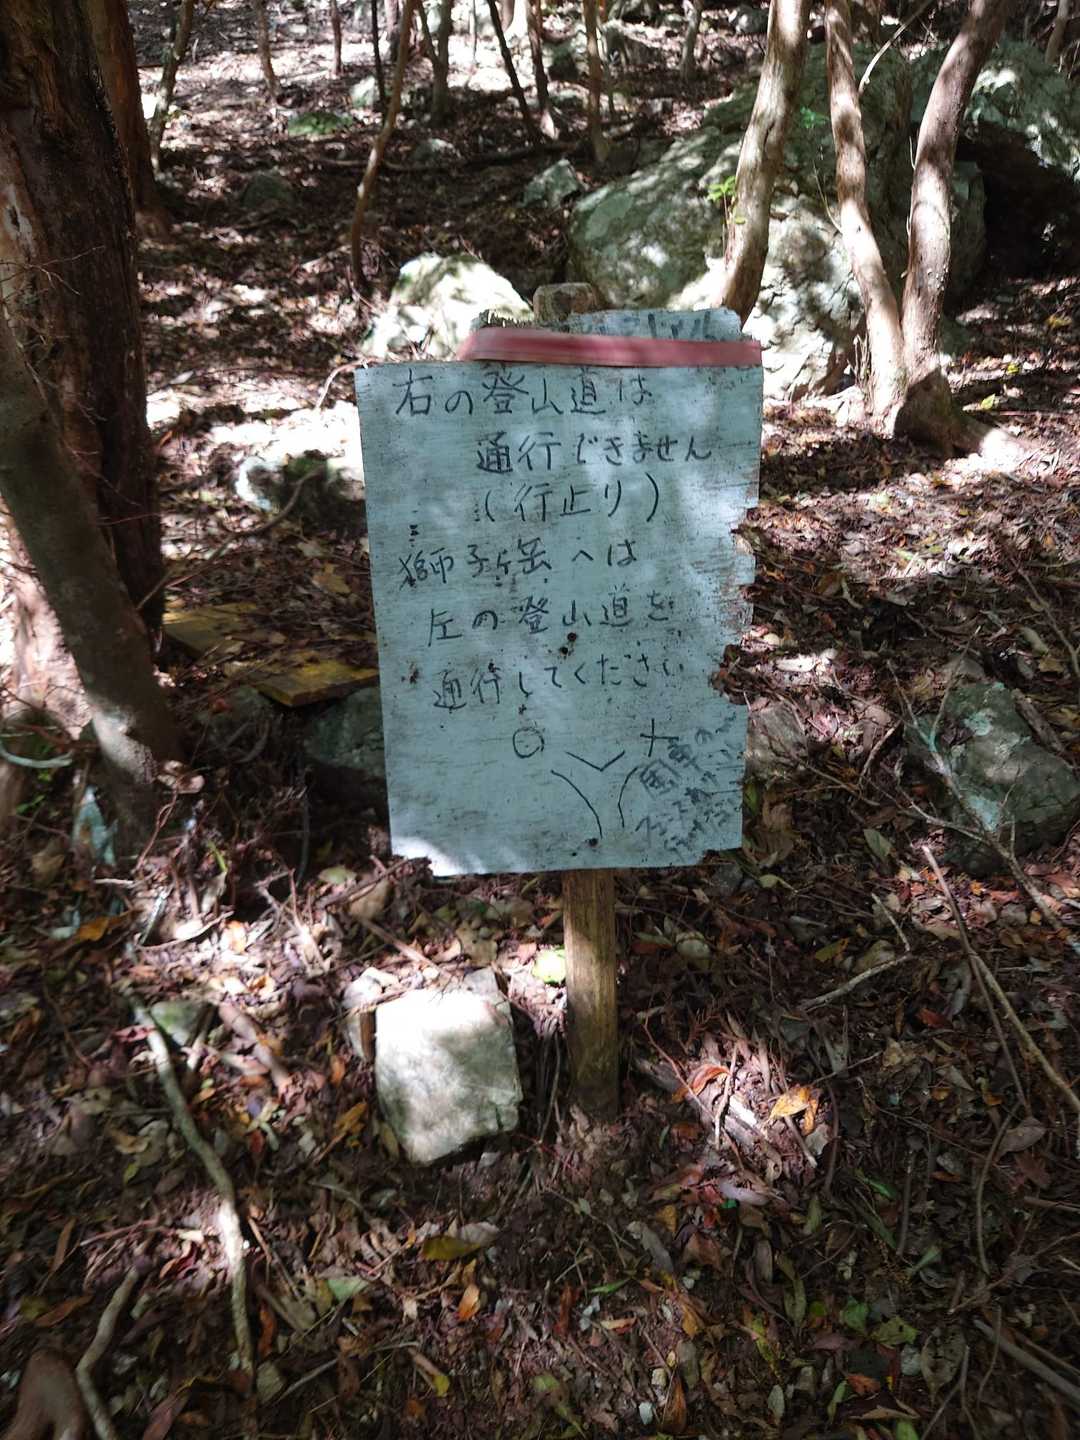 右の登山道は
通行できません
(行止り)
獅子ヶ岳へは
左の登山道を
通行してください